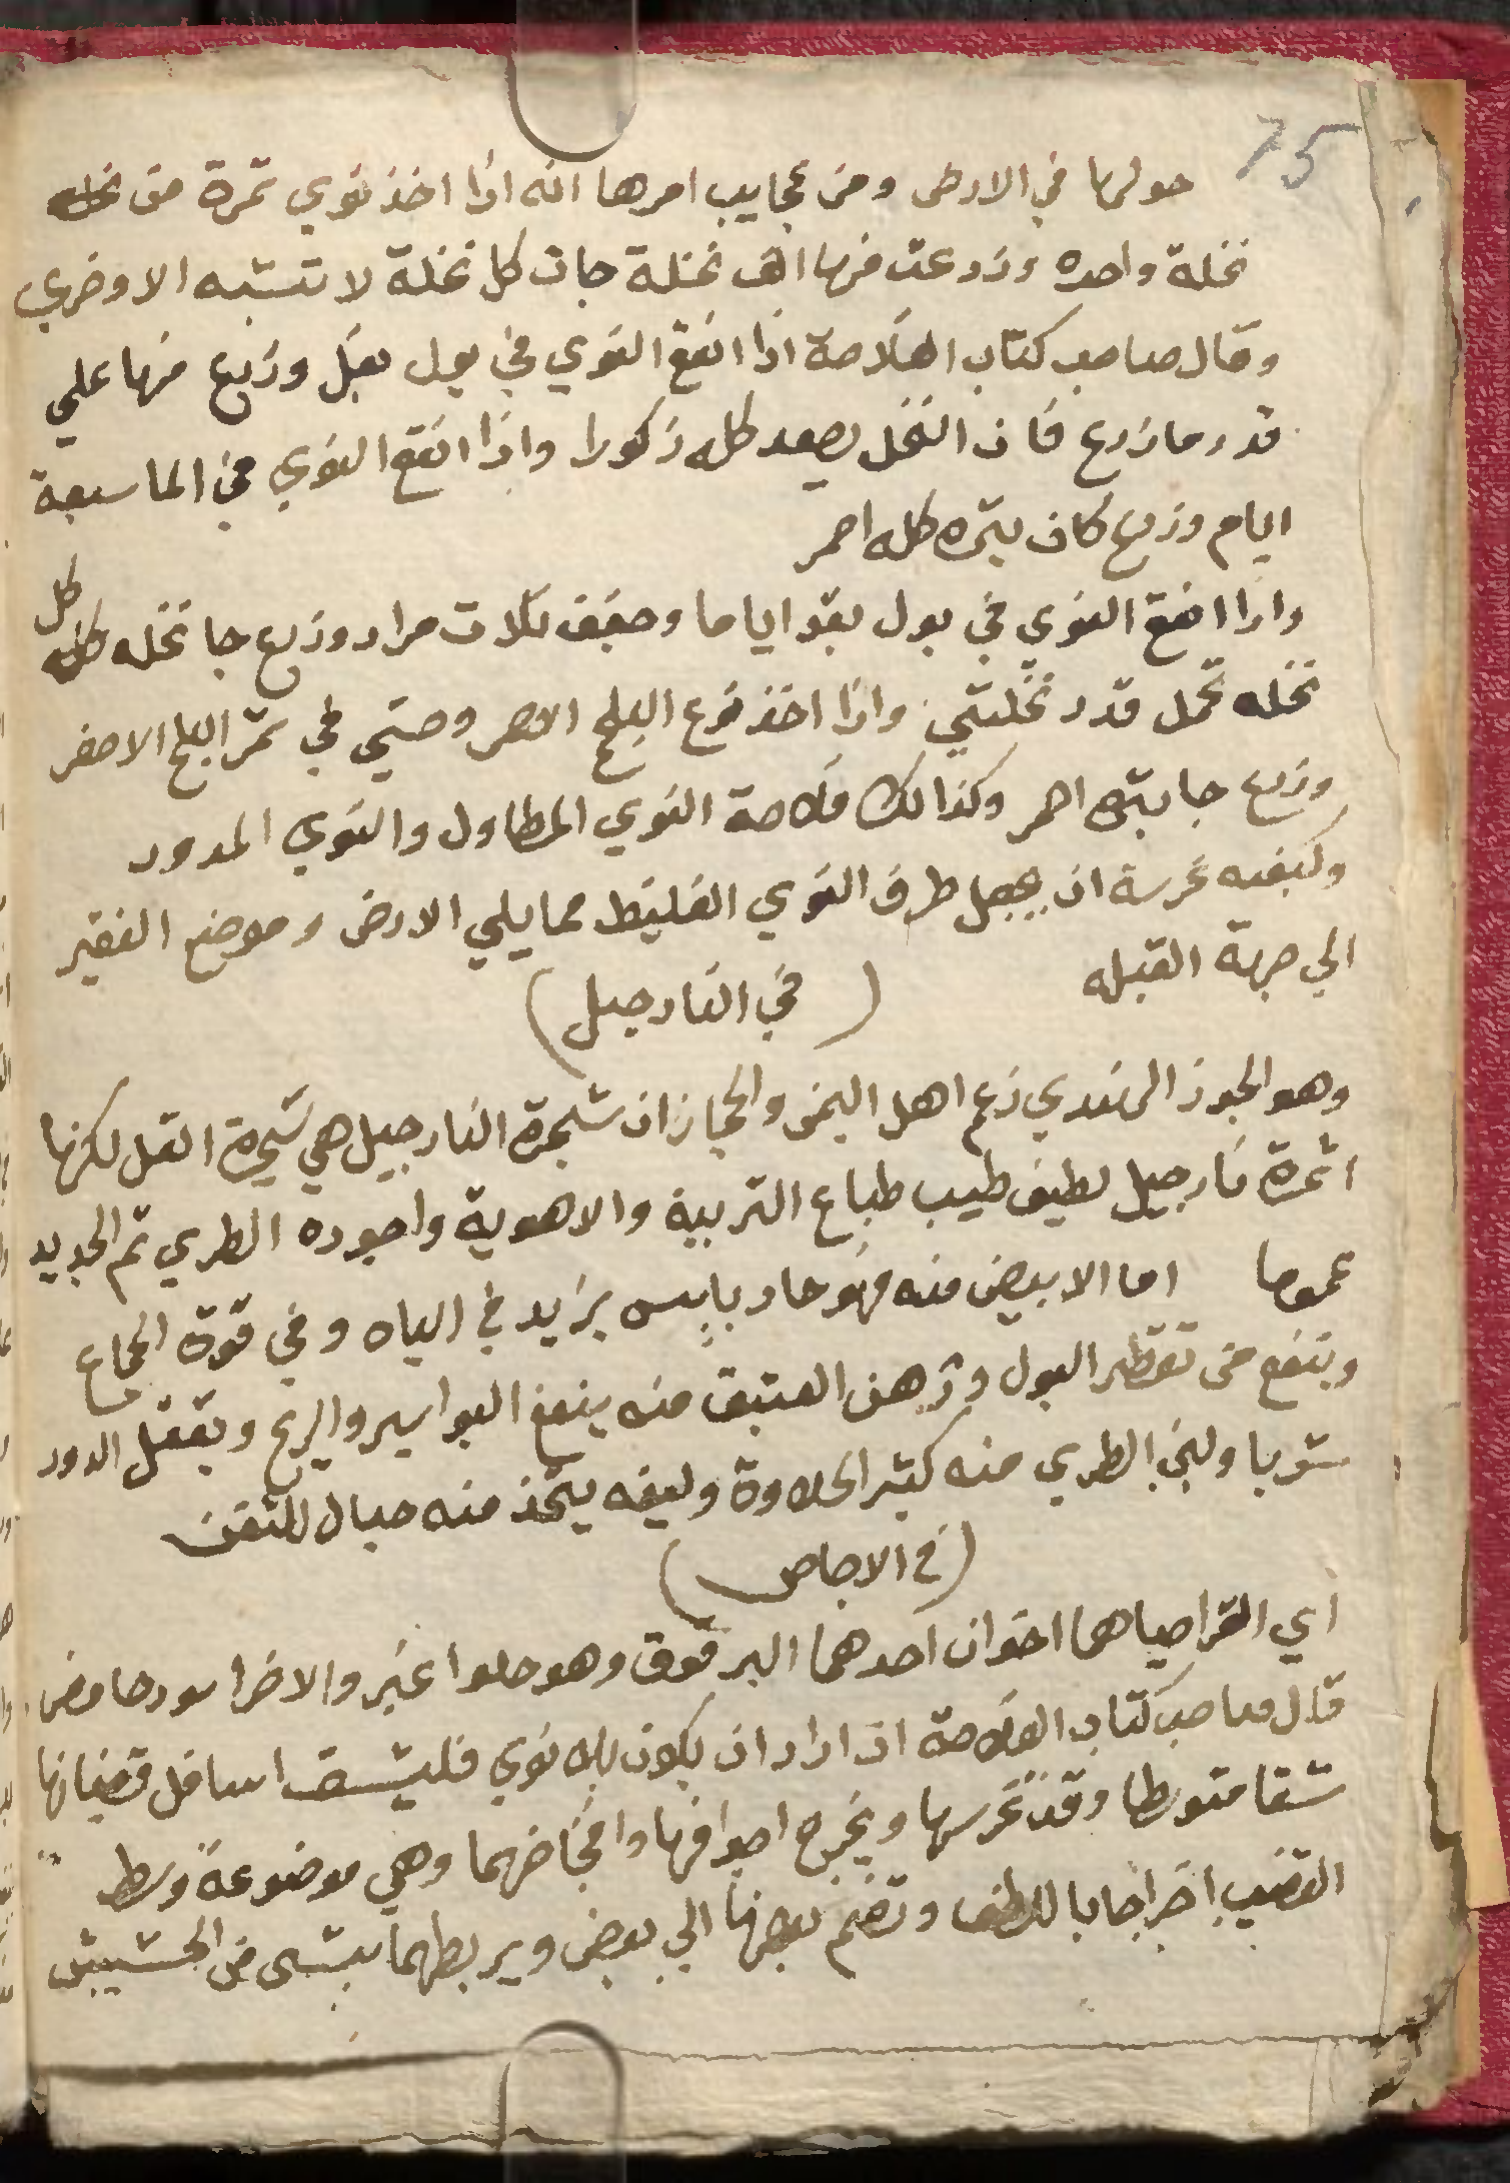 75
حولها في الارض ومن عجايب امرها انه اذا اخذ نوي تمرة من نخله
نخلة واحده وزرعت منها الف نخلة جات كل نخلة لا تشبه الاوخري
وقال صاحب كتاب الفلاحة اذا انقع النوي في بول بغل وزرع منها علي
قدر ما زرع فان النخل يصعد كله ذكورا واذا انقع النوي في الما سبعة
ايام وزرع كان بتمره كله احمر
واذا انقع النوي في بول بقر اياما وجفف ثلات مرار وزرع جا نخله كله كل
نخله تحمل قدر نخلتي واذا اخذ نوع البلح الاحمر وحشي في تمر البلح الاصفر
وزرع جا بتمره احمر وكذالك فلاحة النوي المطاول والنوي المدور
وكيفيه غرسة ان يجعل طرف النوي الغليظ مما يلي الارض وموضع الفقير
الي جهة القبله
(في النارجيل)
وهو الجوز الهندي زعم اهل اليمن والحجاز ان شجرة النارجيل هي شجرة المقل لكنها
اثمرة نارجيل لطيف طيب طباع التربية والاهوية واجوده الطري ثم الجديد
عموما اما الابيض منه فهو حار يابس يزيد في الباه وفي قوة الجماع
وينفع من تقطير البول ودهن العتيق منه ينفع البواسير والريح ويقتل الدود
شربا ولبن الطري منه كثير الحلاوة وليفه يتخذ منه حبال للسفن
(في الاجاص)
اي القراصيا هما اخوان احدهما البرقوق وهو حلوا غير والاخر اسود حامض
قال صاحب كتاب الفلاحة ان اراد ان يكون بلا نوي فليشق اسافل قضبانها
شقا متوسطا وقت غرسها ويخرج اجوافها وامخاضهما وهي موضوعة وسط
القضيب اخراجا باللطف وتضم بعضها الي بعض ويربطهما بشي من الحشيش